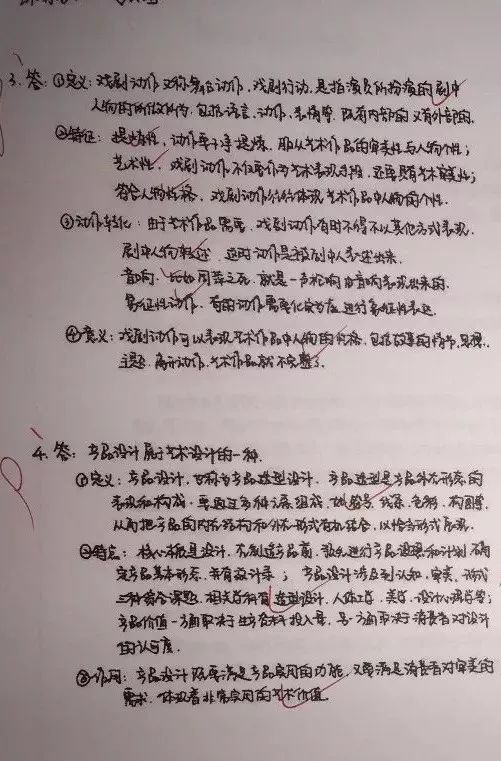 3、答：①定义：戏剧动作又称舞台动作，戏剧行动，是指演员所扮演的剧中
人物的所做所作，包括语言、动作、表情等，既有内部的又有外部的。
②特征：提炼性，动作要干净提炼，服从艺术作品的审美性与人物个性；
艺术性，戏剧动作不仅要作为艺术表现手段，还要具有艺术审美性；
符合人物性格，戏剧动作往往体现艺术作品中人物的个性。
③动作转化：由于艺术作品需要，戏剧动作有时不得不以其他方式表现。
剧中人物转述，这时动作是被剧中人表述出来。
音响，比如周萍之死，就是一声枪响由音响表现出来的。
象征性动作，有的动作需要化实为虚，进行象征性表达。
④意义：戏剧动作可以表现艺术作品中人物的性格，包括故事的情节、思想、
主题，离开动作，艺术作品就不完整了。
4、答：产品设计属于艺术设计的一种。
①定义：产品设计，也称为产品造型设计，产品造型是产品外在形态的
表现和构成，要通过多种元素组成，如符号、线条、色彩、构图等，
从而把产品的内在结构和外在形式有机结合，以恰当形式展现。
②特点：核心概是设计，在制造产品前，预先进行产品设想和计划，确
定产品基本形态，并有设计录；产品设计涉及到认知、审美、形式
三种综合课题，相关学科有造型设计、人体工学、美学、设计心理学等；
产品价值一方面取决于生产资料投入等，另一方面取决于消费者对设计
的认可度。
③作用：产品设计既要满足产品实用的功能，又要满足消费者对审美的
需求，体现着非常实用的艺术价值。